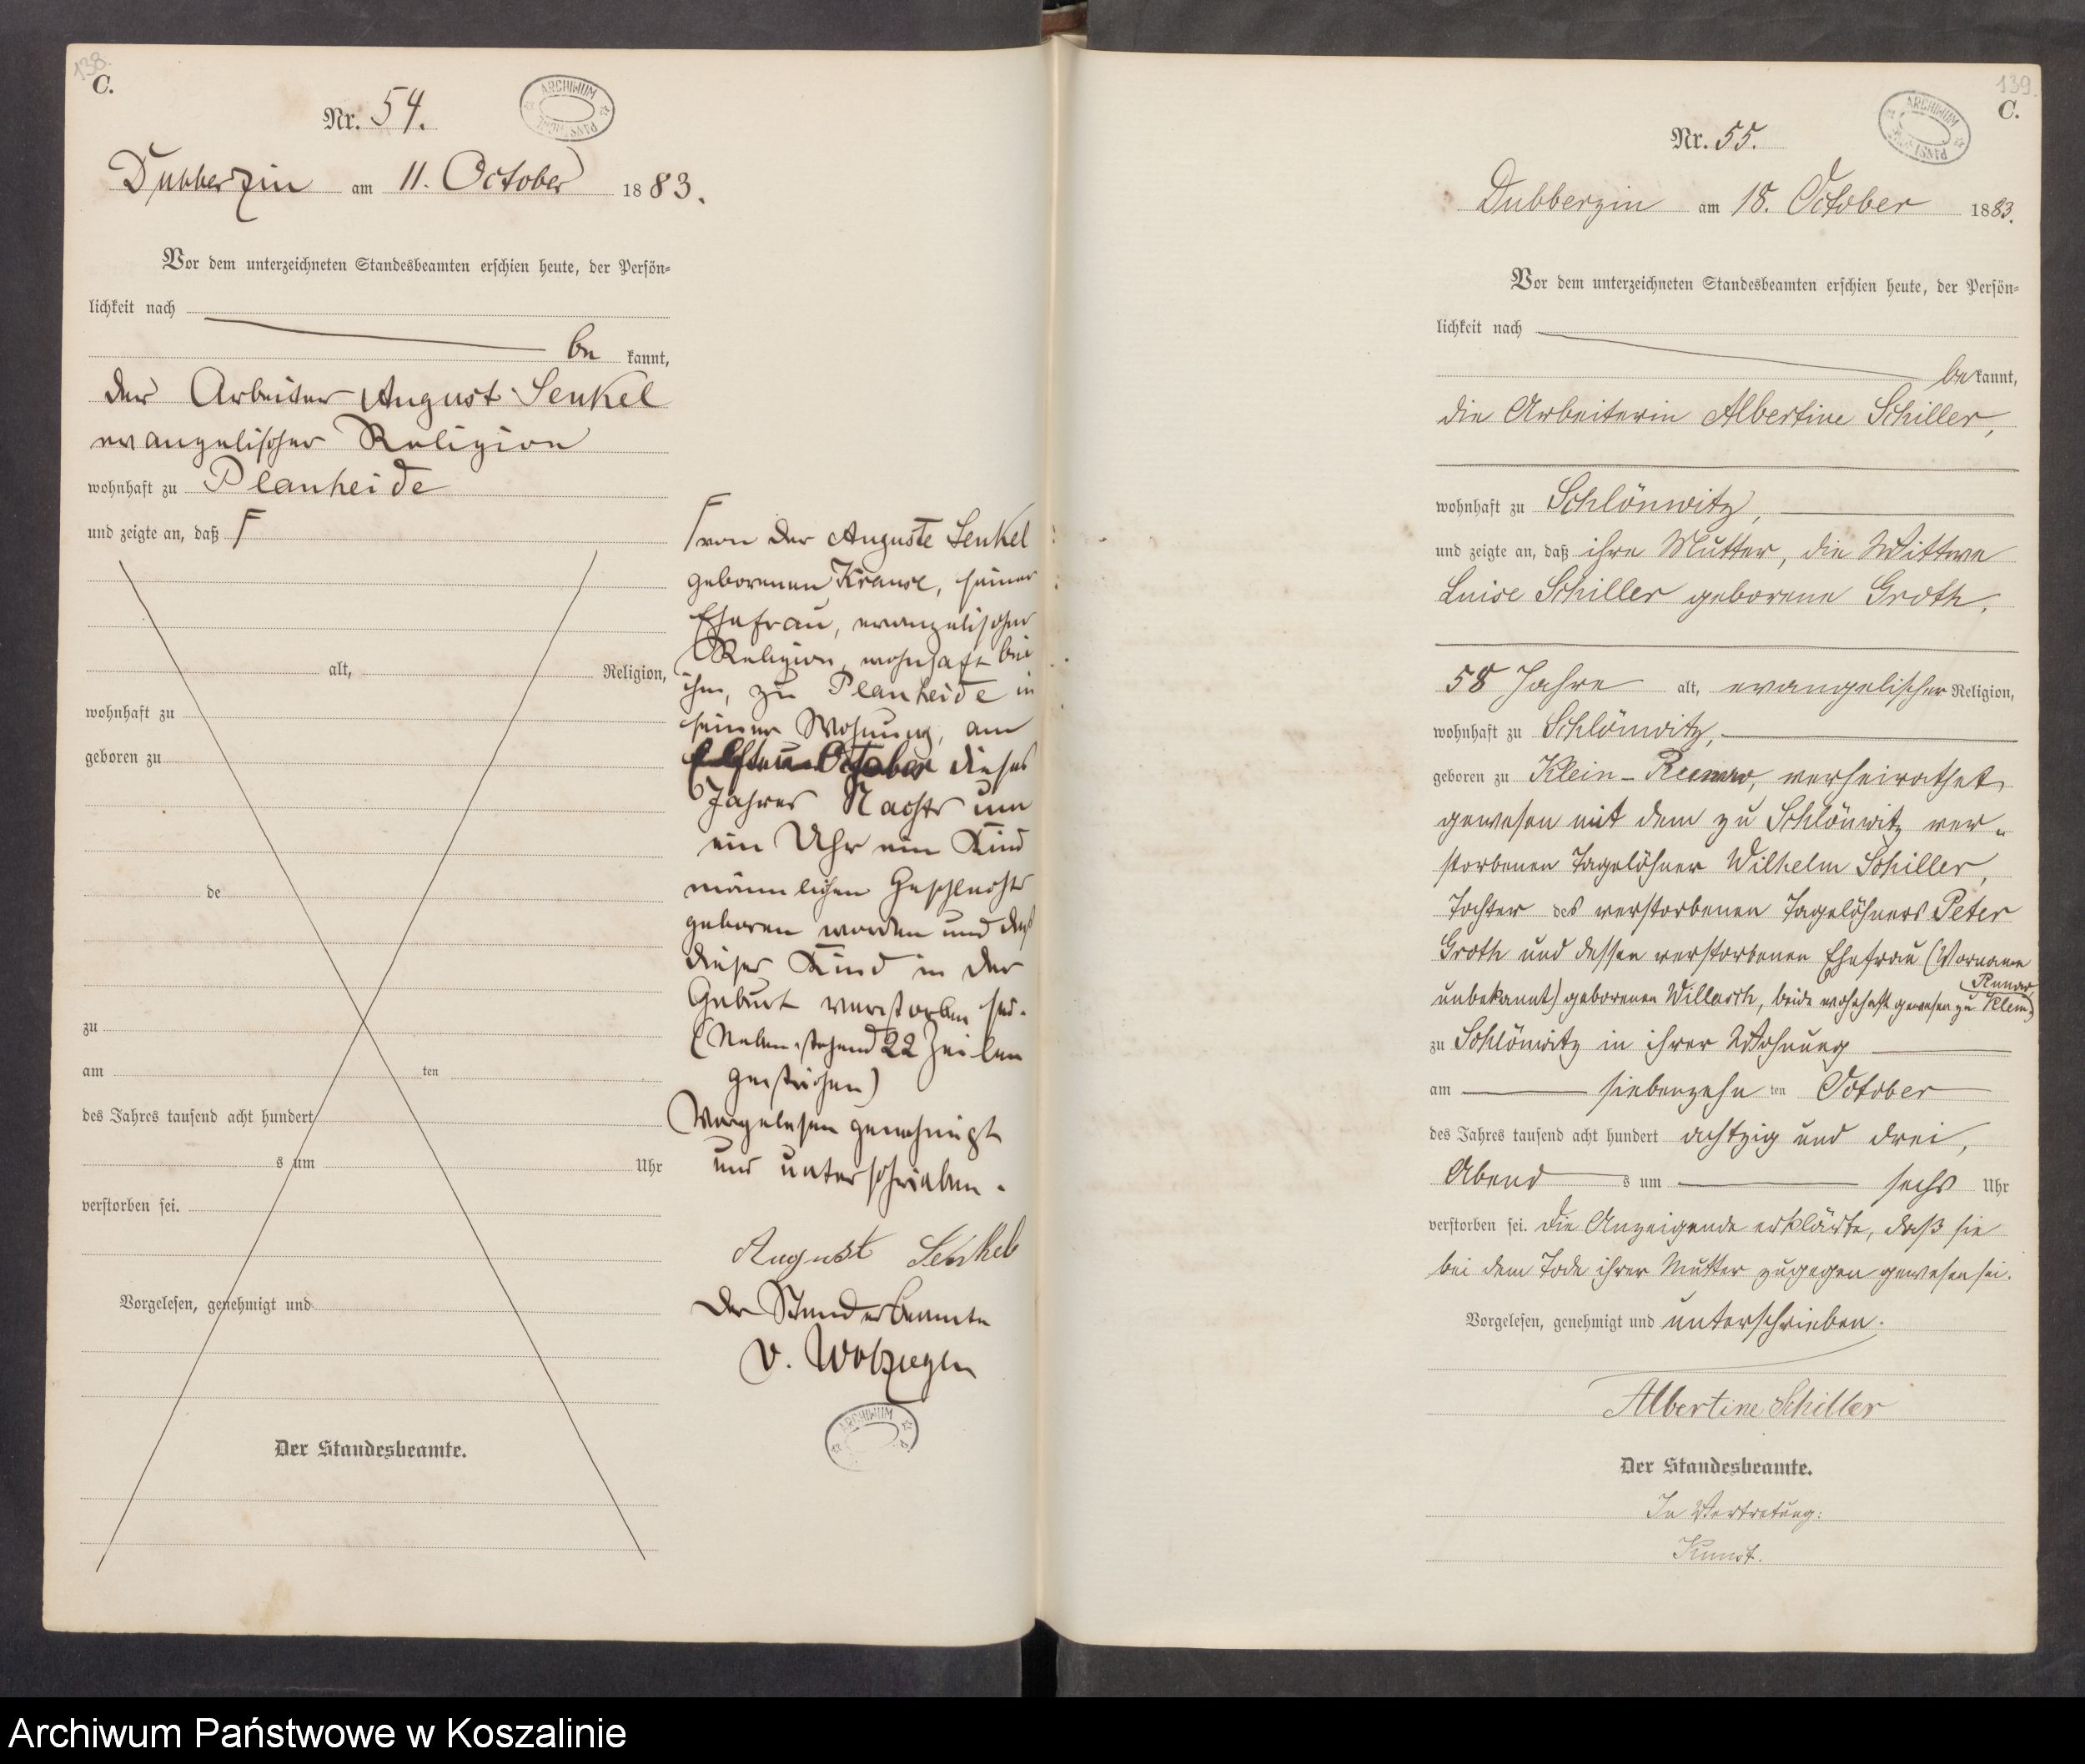 138.
C.
Nr. 54.
ARCHIWUM
Dubberzin am 11. October 1883.
Vor dem unterzeichneten Standesbeamten erschien heute, der Persön=
lichkeit nach
be kannt,
der Arbeiter August Senkel
evangelischer Religion
wohnhaft zu Planheide
und zeigte an, daß F
alt, Religion,
wohnhaft zu
geboren zu
de
zu
am ten
des Jahres tausend acht hundert
s um Uhr
verstorben sei.
Vorgelesen, genehmigt und
Der Standesbeamte.
F von der Auguste Senkel
geborenen Krause, seiner
Ehefrau, evangelischer
Religion, wohnhaft bei
ihm, zu Planheide in
seiner Wohnung, am
elften October dieses
Jahres Nachts um
ein Uhr ein Kind
männlichen Geschlechts
geboren worden und daß
dieses Kind in der
Geburt verstorben sei.
(Nebenstehend 22 Zeilen
gestrichen)
Vorgelesen genehmigt
und unterschrieben.
August Senkel
Der Standesbeamte
v. Wolzogen
ARCHIWUM
139.
C.
Nr. 55.
ARCHIWUM
Dubberzin am 18. October 1883.
Vor dem unterzeichneten Standesbeamten erschien heute, der Persön=
lichkeit nach
bekannt,
die Arbeiterin Albertine Schiller,
wohnhaft zu Schlönwitz,
und zeigte an, daß ihre Mutter, die Wittwe
Luise Schiller geborene Groth,
58 Jahre alt, evangelischer Religion,
wohnhaft zu Schlönwitz,
geboren zu Klein-Runow, verheirathet
gewesen mit dem zu Schlönwitz ver-
storbenen Tagelöhner Wilhelm Schiller,
Tochter des verstorbenen Tagelöhners Peter
Groth und dessen verstorbenen Ehefrau (Vorname
unbekannt) geborenen Willasch, beide wohnhaft gewesen zu Klein-
Runow,
zu Schlönwitz in ihrer Wohnung
am siebenzehn ten October
des Jahres tausend acht hundert achtzig und drei,
Abend s um sechs Uhr
verstorben sei. Die Anzeigende erklärte, daß sie
bei dem Tode ihrer Mutter zugegen gewesen sei.
Vorgelesen, genehmigt und unterschrieben.
Albertine Schiller
Der Standesbeamte.
In Vertretung:
Kunst.
Archiwum Państwowe w Koszalinie